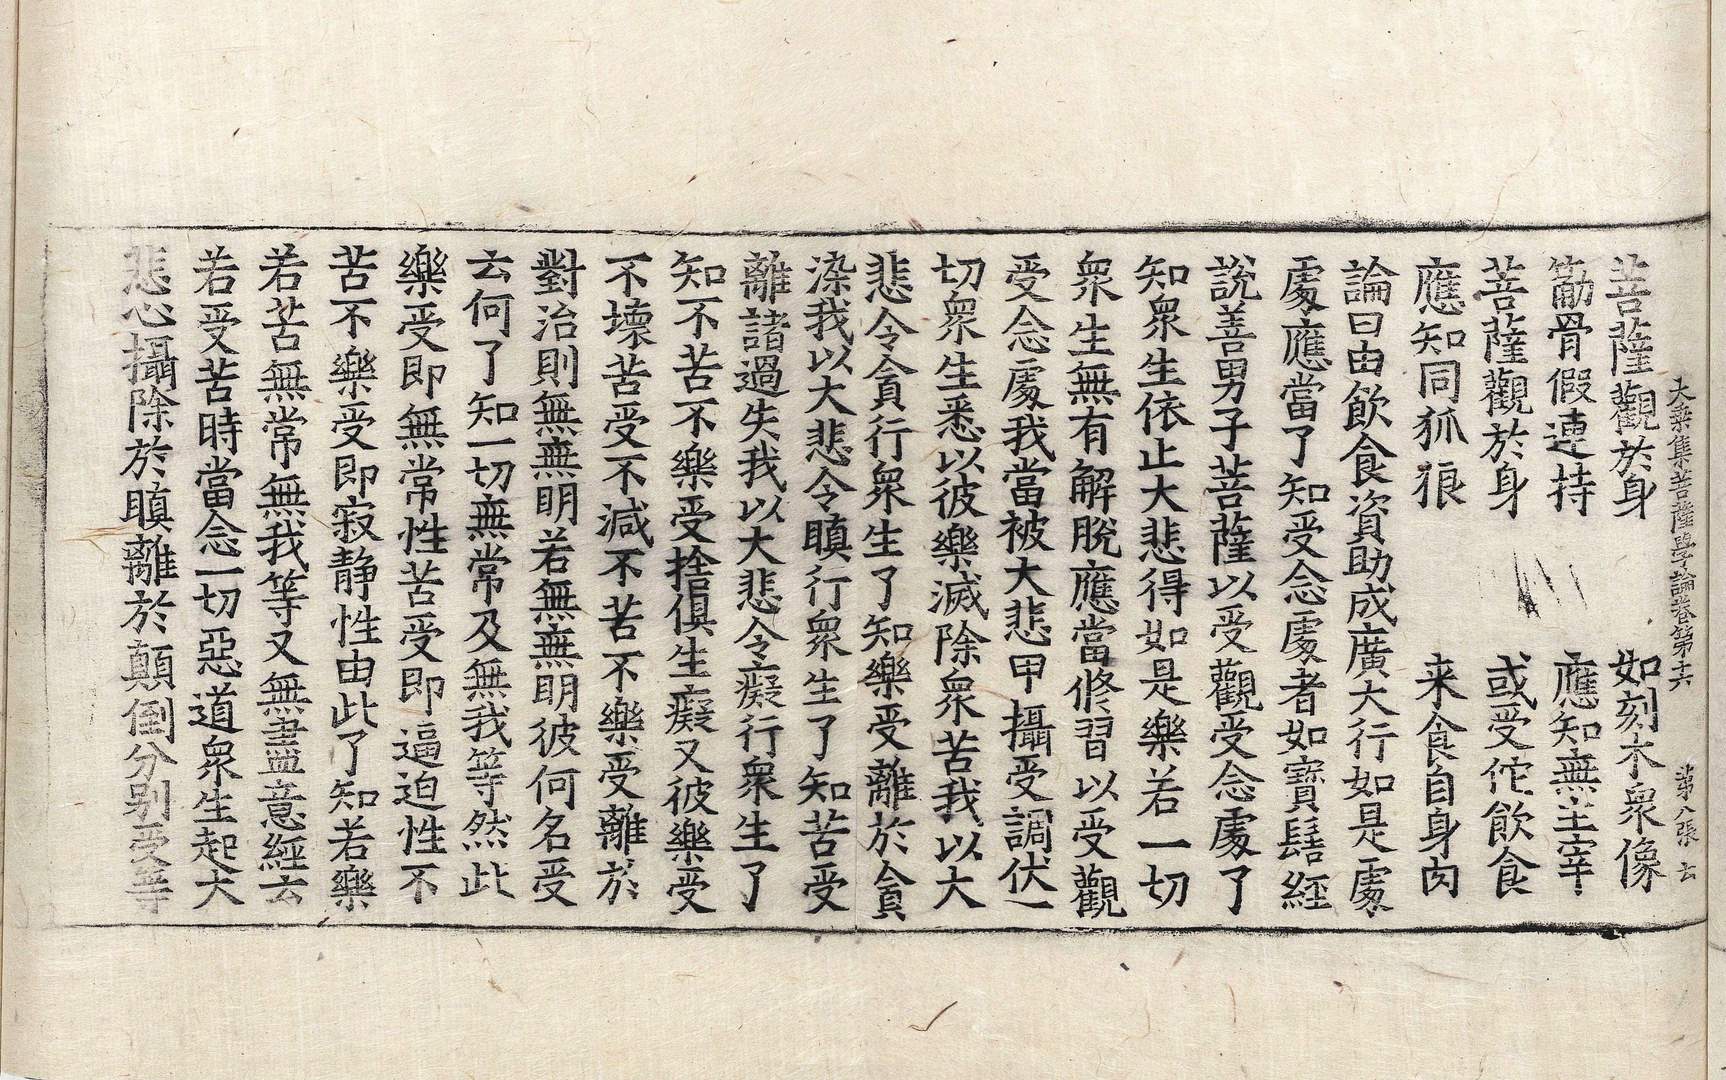 大乘集菩薩學論卷第十六　第八張　云
菩薩觀於身　如刻木衆像
筋骨假連持　應知無主宰
菩薩觀於身　或受佗飲食
應知同狐狼　来食自身肉
論曰由飲食資助成廣大行如是處
處應當了知受念處者如寶髻經
說善男子菩薩以受觀受念處了
知衆生依止大悲得如是樂若一切
衆生無有解脫應當修習以受觀
受念處我當被大悲甲攝受調伏一
切衆生悉以彼樂滅除衆苦我以大
悲令貪行衆生了知樂受離於貪
染我以大悲令瞋行衆生了知苦受
離諸過失我以大悲令癡行衆生了
知不苦不樂受捨俱生癡又彼樂受
不壞苦受不減不苦不樂受離於
對治則無無明若無無明彼何名受
云何了知一切無常及無我等然此
樂受即無常性苦受即逼迫性不
苦不樂受即寂静性由此了知若樂
若苦無常無我等又無盡意經云
若受苦時當念一切惡道衆生起大
悲心攝除於瞋離於顛倒分别受等